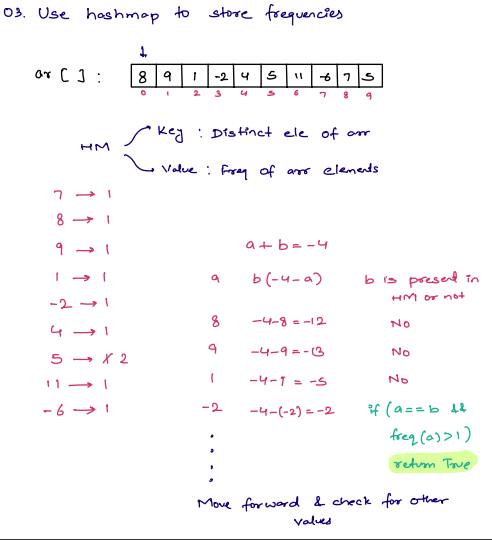 03. Use hashmap to store frequencies
ar [ ] : 8 9 1 -2 4 5 11 -6 7 5
0 1 2 3 4 5 6 7 8 9
HM
Key : Distinct ele of arr
Value : Freq of arr elements
7 → 1
8 → 1
9 → 1
1 → 1
-2 → 1
4 → 1
5 → 1 2
11 → 1
-6 → 1
a + b = -4
a b(-4-a) b is present in
HM or not
8 -4-8 = -12 No
9 -4-9 = -13 No
1 -4-1 = -5 No
-2 -4-(-2) = -2 if (a==b &&
freq(a)>1)
return True
Move forward & check for other
values